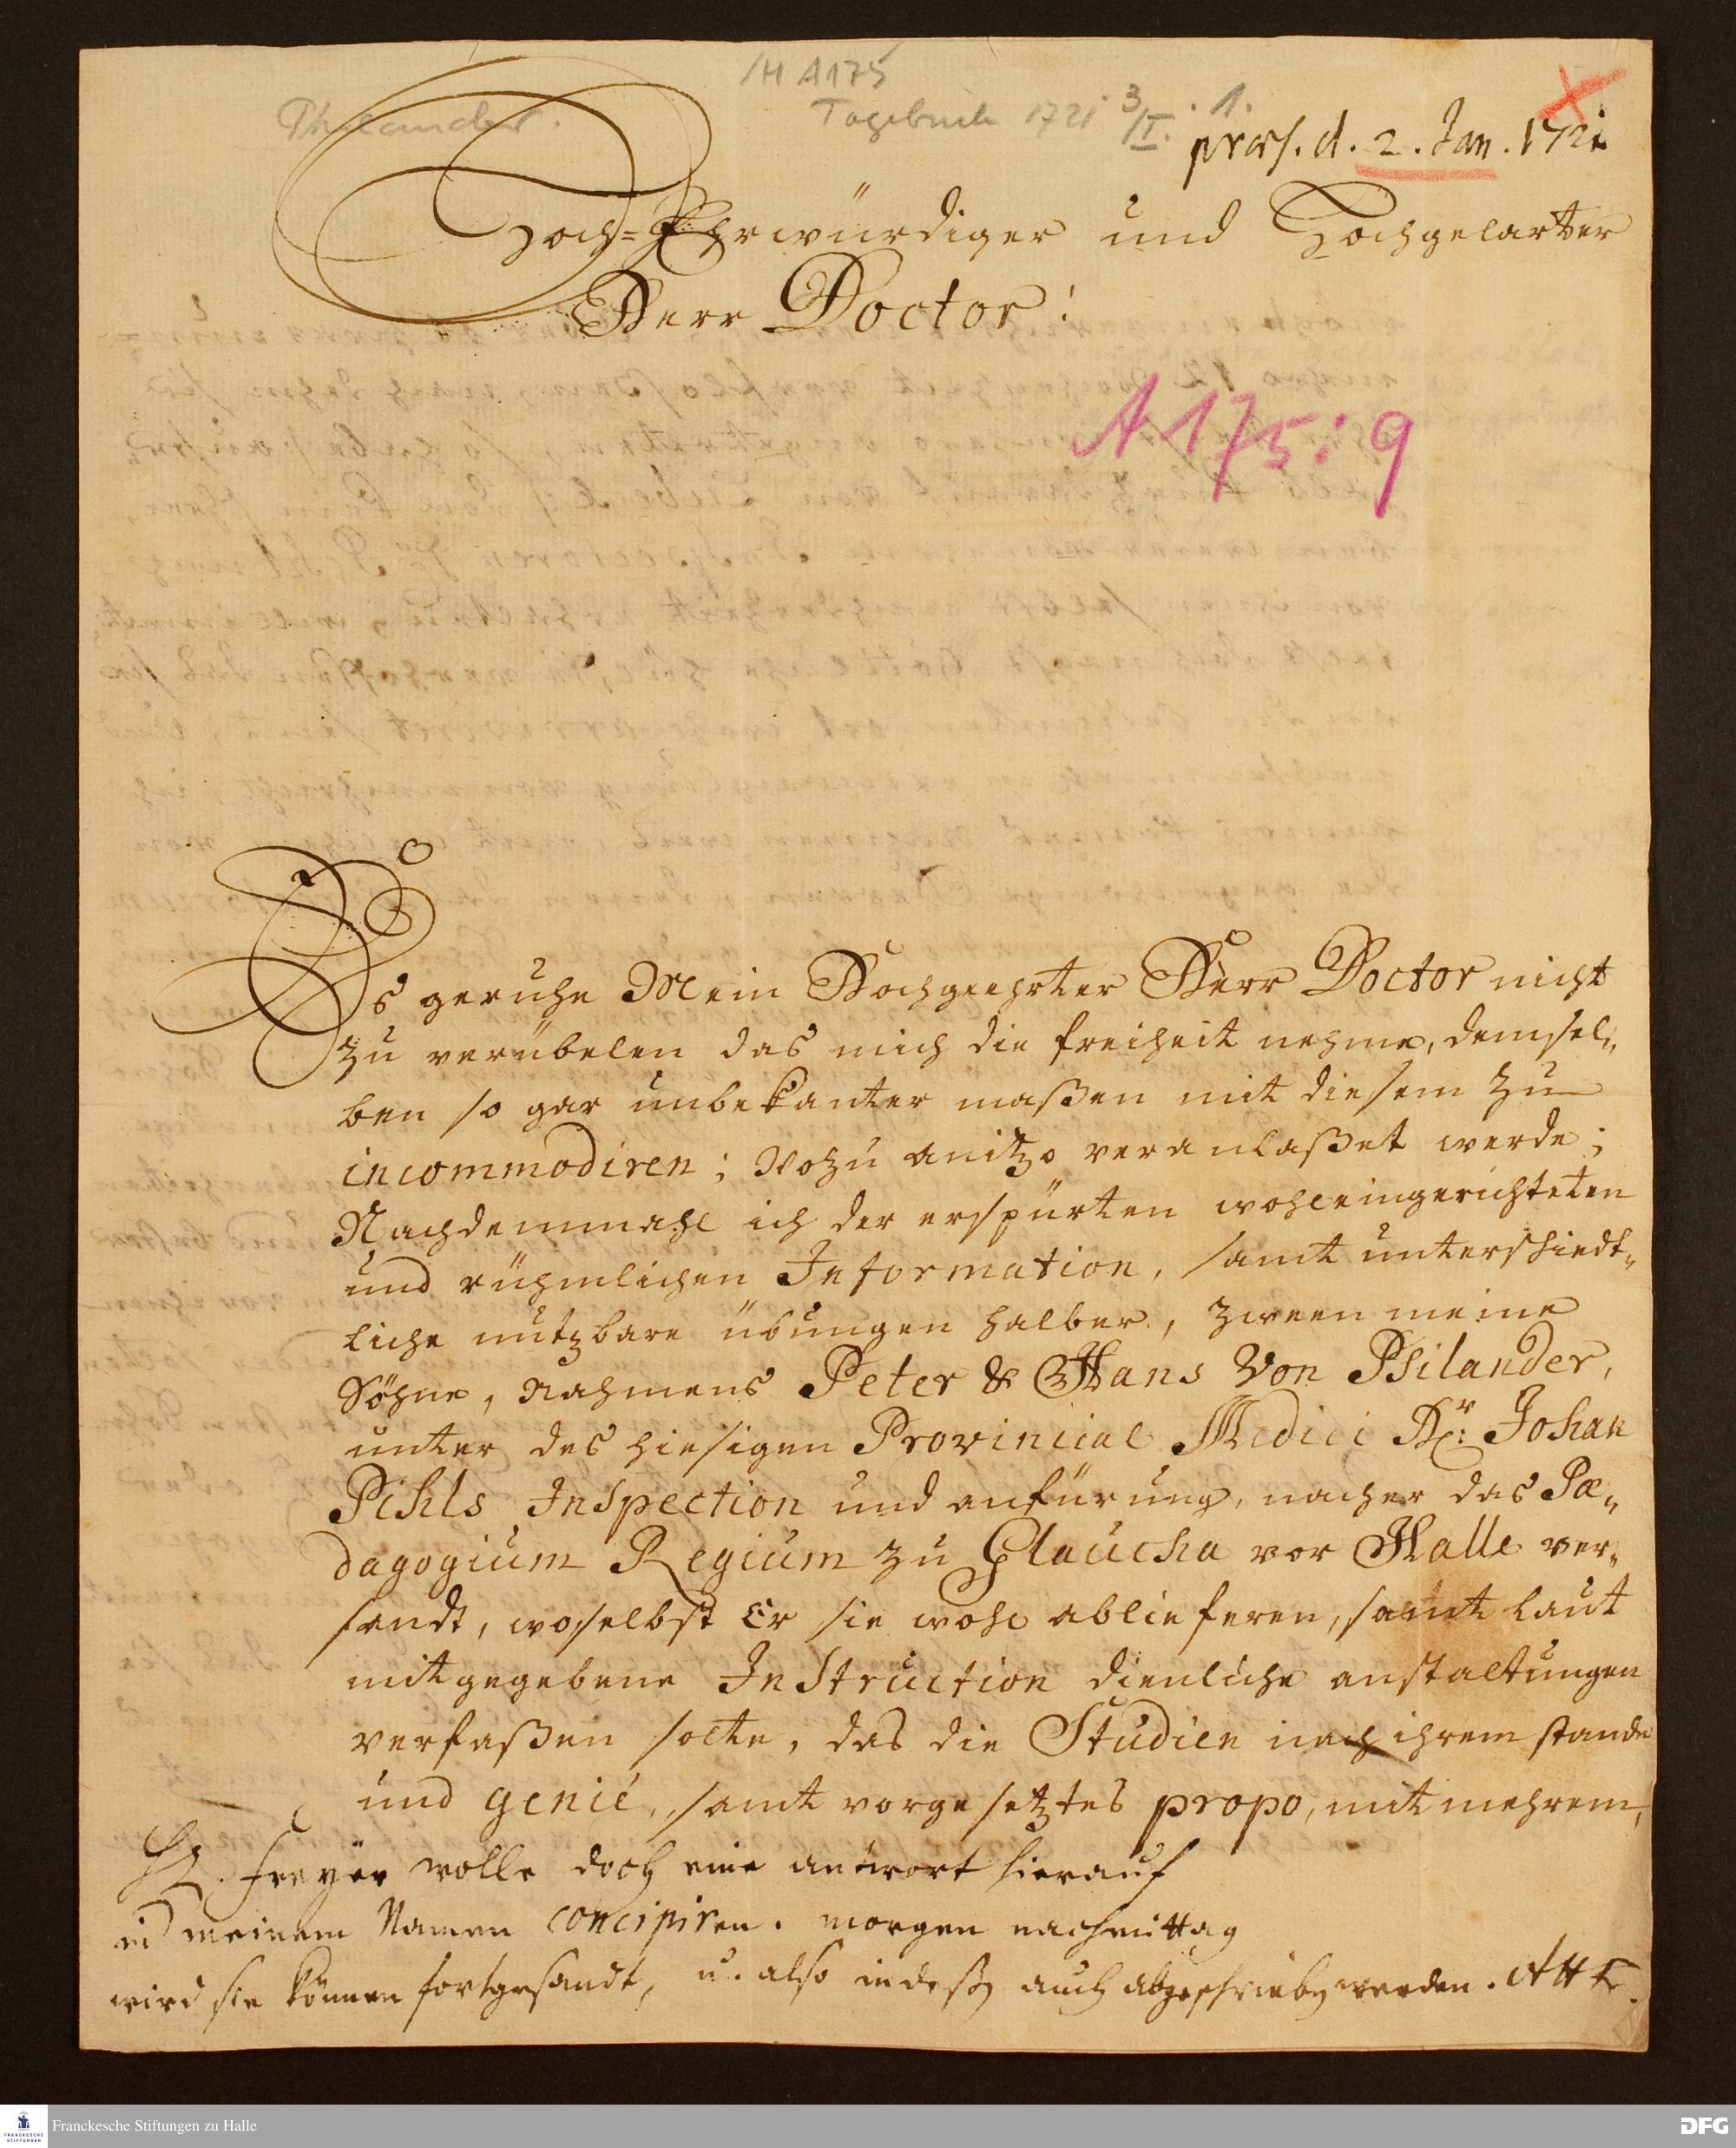 /H A175
Philander.
Tagebuch 1721 3/I. 1.
præs. d. 2. Jan. 1721
Hoch-Ehrwürdiger und Hochgelarter
Herr Doctor!
A 175:9
Es geruhe Mein Hochgeehrter Herr Doctor nicht
zu verübelen das mich die freiheit nehme, demsel„
ben so gar unbekanter maßen mit diesem zu
incommodiren; Wozu anitzo veranlaßet werde;
Nachdemmahl ich der erspürten wohleingerichteten
und rühmlichen Information, samt unterschiedt„
liche nutzbare übungen halber, zween meine
Söhne, Nahmens Peter & Hans Von Psilander,
unter des hiesigen Provincial Medici Dr: Johan
Pihls Inspection und anfürung, nacher das Pæ„
dagogium Regium zu Glaucha vor Halle ver„
sandt, woselbst Er sie wohl ablieferen, samt laut
mitgegebene Instruction dienliche anstaltungen
verfaßen solte, das die Studien nach ihrem stande
und genie, samt vorgesetztes propo, mit mehrem,
H. Freyer wolle doch eine antwort hierauf
in meinem Namen concipiren. morgen nachmittag
wird sie können fortgesandt, u. also indeß auch abgeschrieben werden. AHF.
Franckesche Stiftungen zu Halle
FRANCKESCHE
STIFTUNGEN
DFG